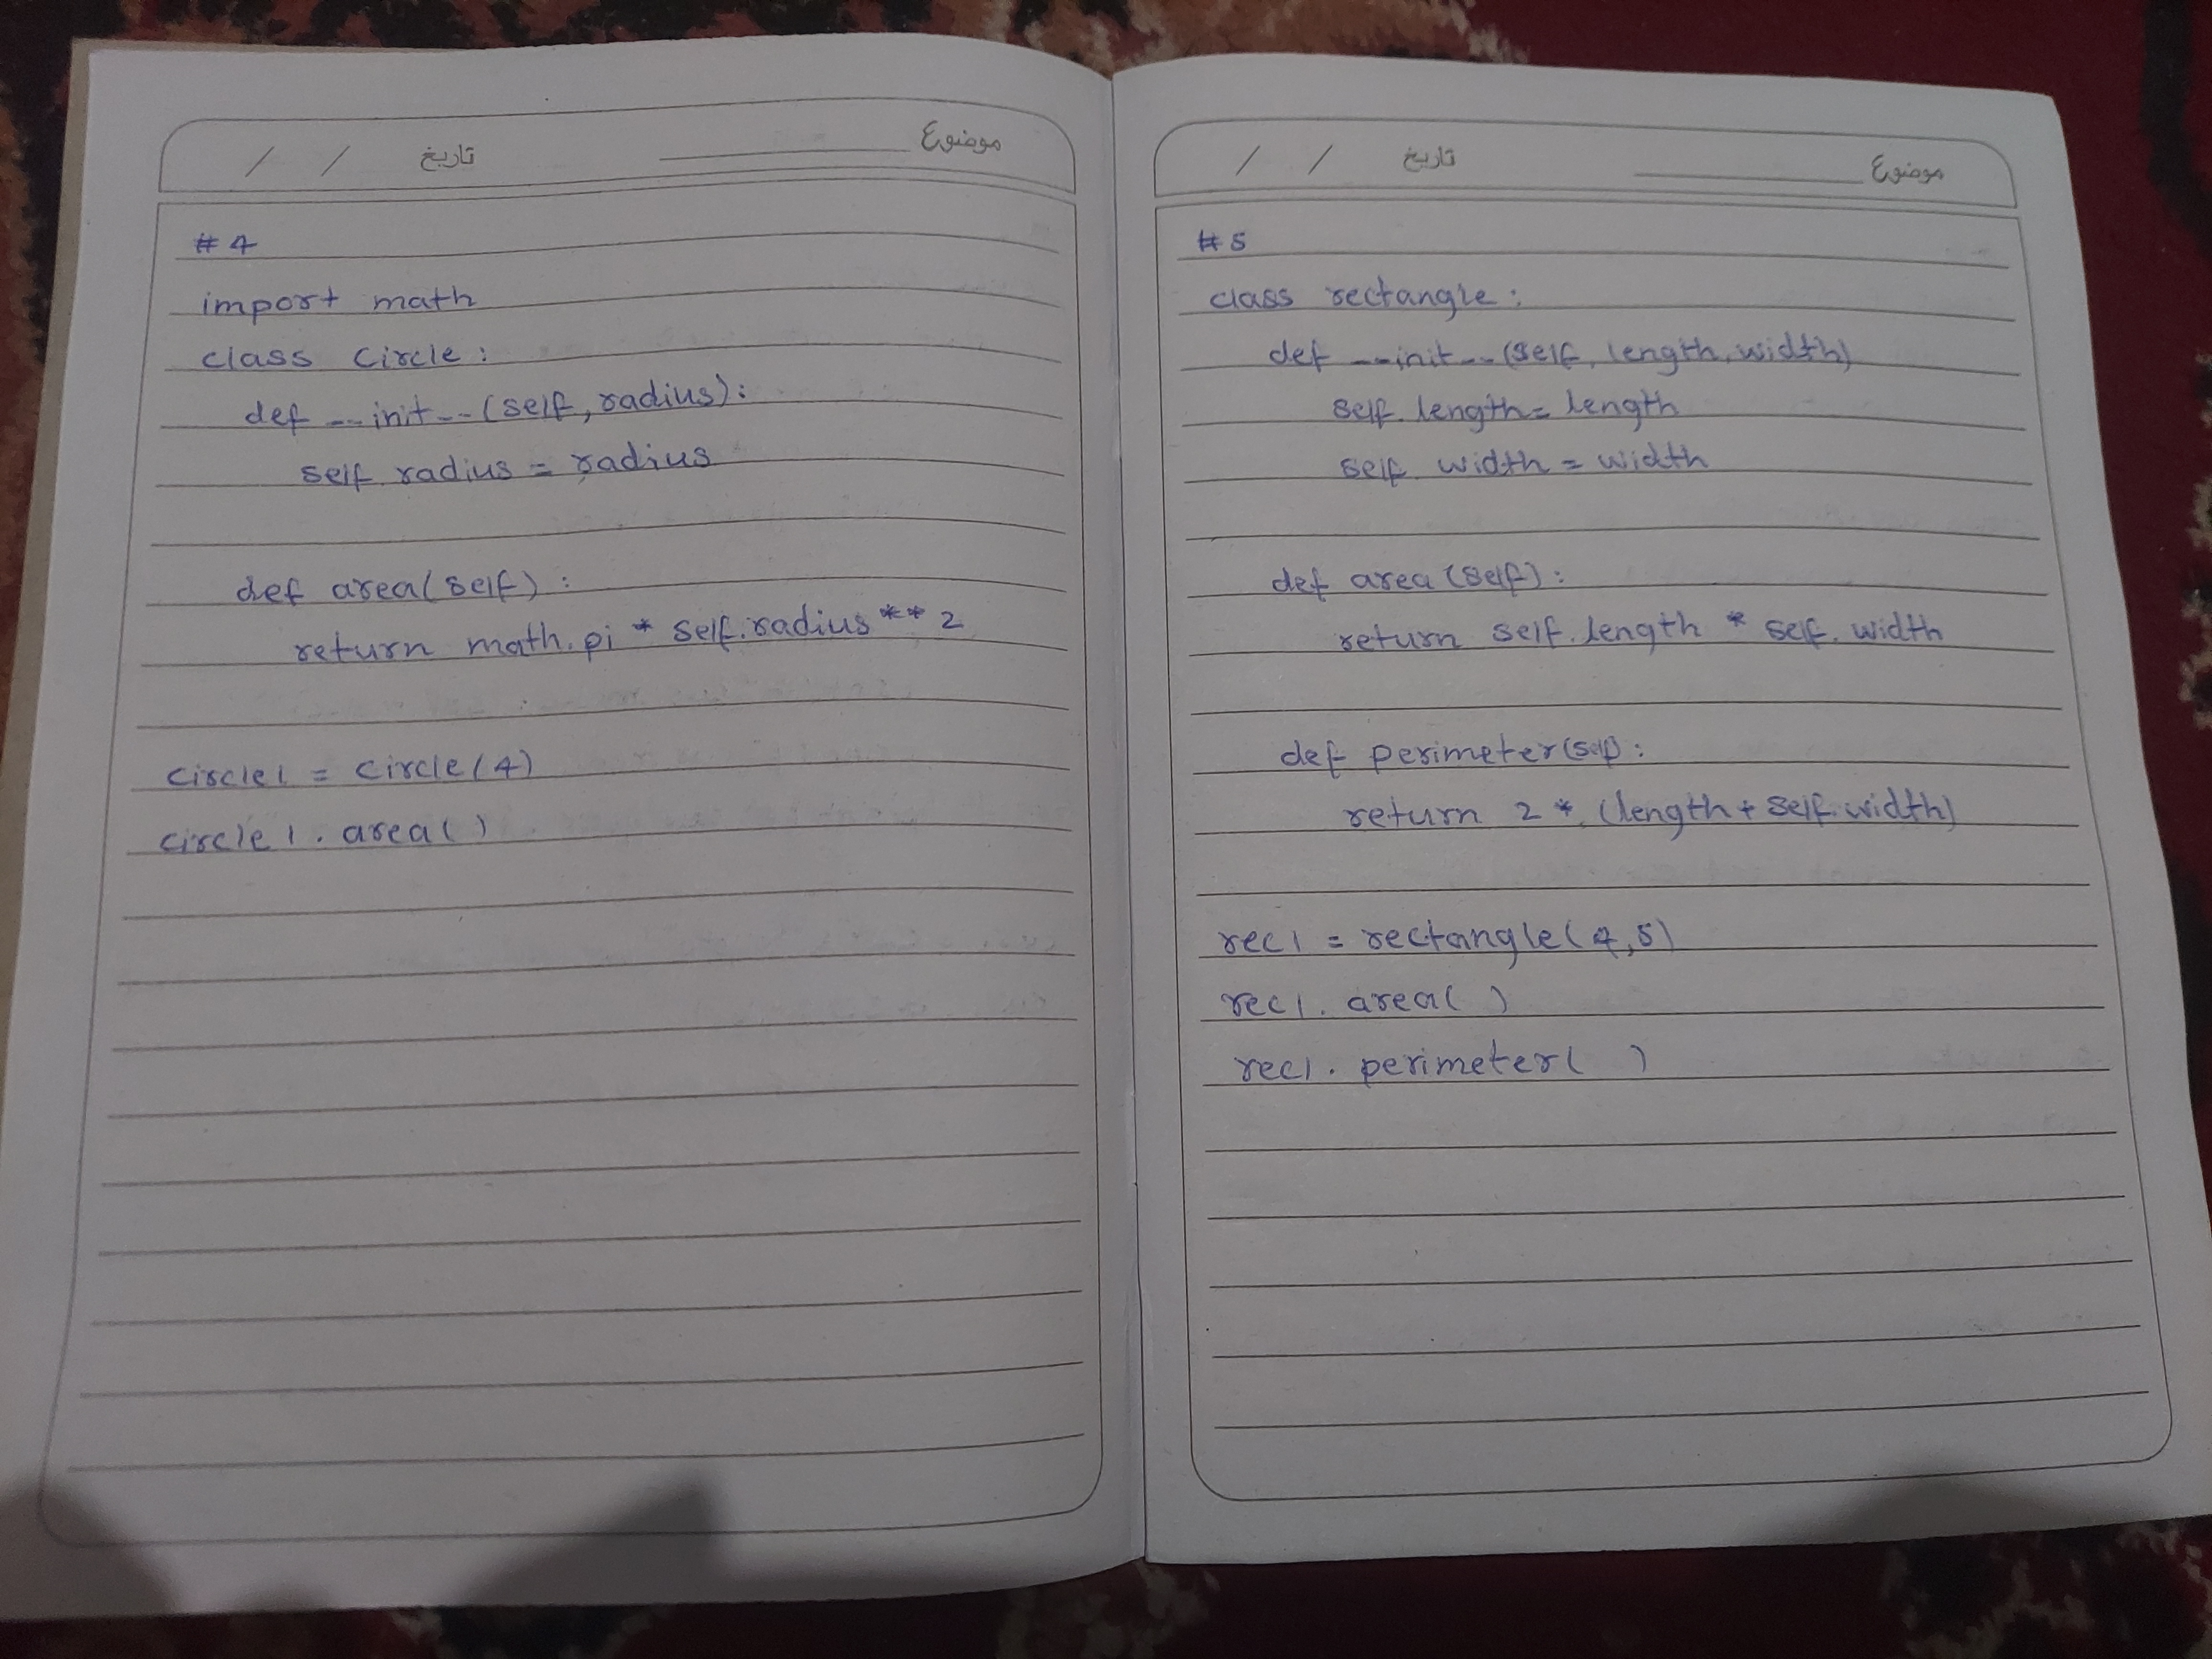 / / تاریخ موضوع
#4
import math
class circle:
def __init__(self, radius):
self.radius = radius
def area(self):
return math.pi * self.radius ** 2
circle1 = circle(4)
circle1.area()
/ / تاریخ موضوع
#5
class rectangle:
def __init__(self, length, width)
self.length = length
self.width = width
def area(self):
return self.length * self.width
def perimeter(self):
return 2 * (length + self.width)
rec1 = rectangle(4,5)
rec1.area()
rec1.perimeter()